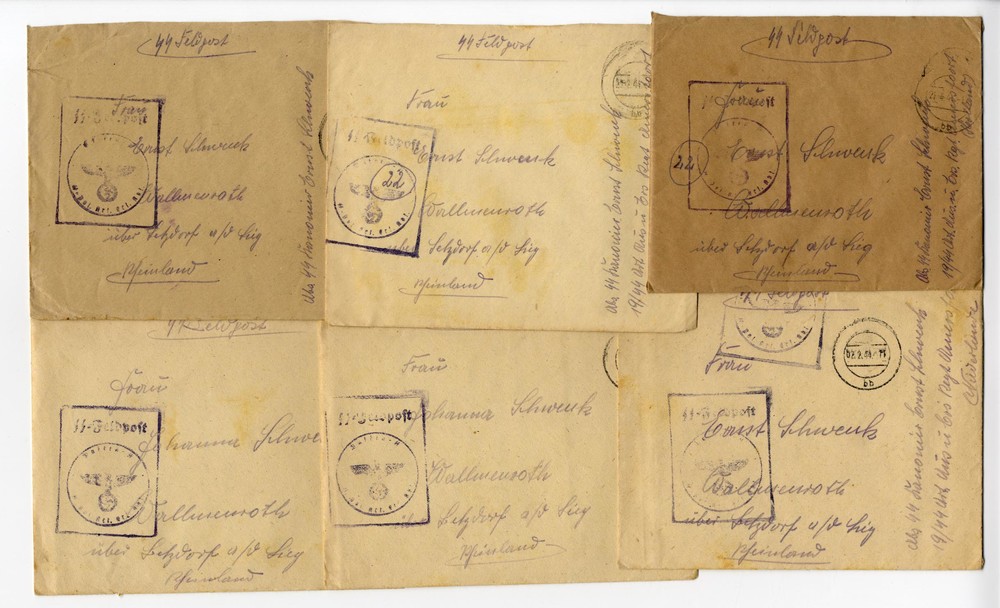 SS Feldpost
Frau
SS-Feldpost
Ernst Schwenk
Wallmenroth
über Betzdorf a/d Sieg
Rheinland
Abs SS Kanonier Ernst Schwenk
SS Feldpost
Frau
SS-Feldpost
22
Ernst Schwenk
Wallmenroth
über Betzdorf a/d Sieg
Rheinland
Abs SS Kanonier Ernst Schwenk
19/SS Art Aus u Ers Regt
SS Feldpost
Frau
22
Ernst Schwenk
Wallmenroth
über Betzdorf a/d Sieg
Rheinland
Abs SS Kanonier Ernst Schwenk
19/SS Art Aus u Ers Regt
SS Feldpost
Frau
SS-Feldpost
Johanna Schwenk
Wallmenroth
über Betzdorf a/d Sieg
Rheinland
Frau
SS-Feldpost
Johanna Schwenk
Wallmenroth
über Betzdorf a/d Sieg
Rheinland
SS Feldpost
Frau
SS-Feldpost
bb
Ernst Schwenk
Wallmenroth
über Betzdorf a/d Sieg
Rheinland
Abs SS Kanonier Ernst Schwenk
19/SS Art Aus u Ers Regt